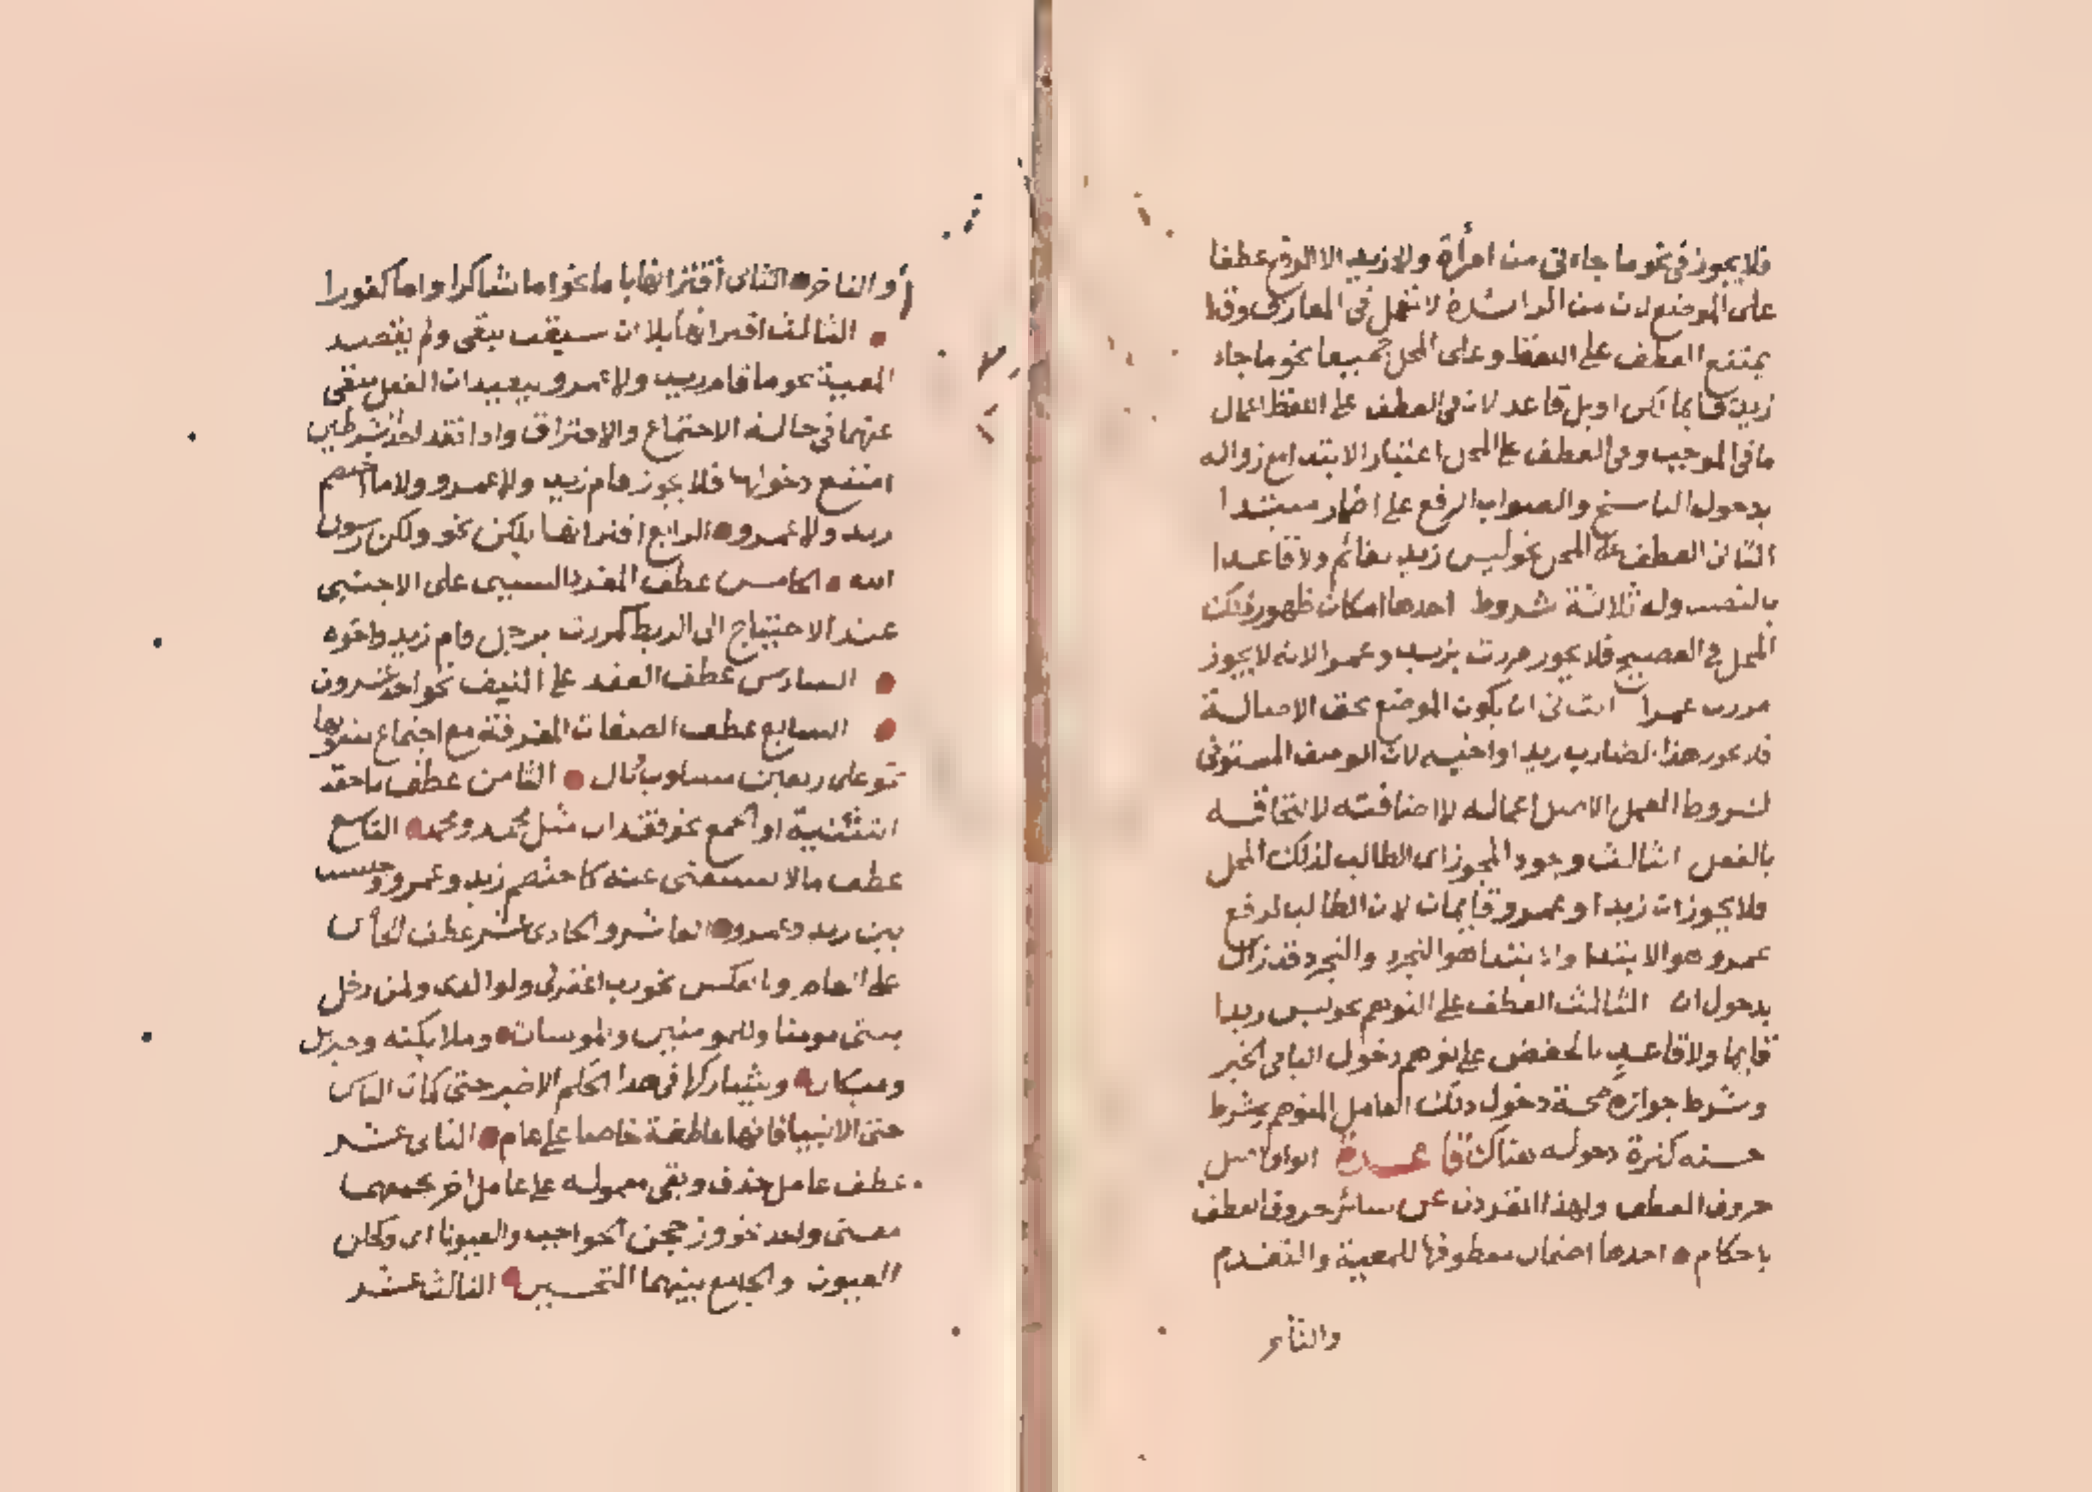 فلا يجوز في نحو ما جاءني من امرأة ولا زيد الا الرفع عطفا
على الموضع لان من الزائدة لا تعمل في المعارف وقد
يمتنع العطف على اللفظ وعلى المحل جميعا نحو ما جاء
زيد قائما لكن او بل قاعد لان في العطف على اللفظ اعمال
ما في الموجب وفي العطف على المحل اعتبار الابتدا مع زواله
بدخول الناسخ والصواب الرفع على اضمار مبتدا
الثاني العطف على المحل نحو ليس زيد بقائم ولا قاعدا
بالنصب وله ثلاثة شروط احدها امكان ظهور ذلك
المحل في الفصيح فلا يجوز مررت بزيد وعمرا لانه لا يجوز
مررت عمرا الثاني ان يكون الموضع بحق الاصالة
فلا يجوز هذا الضارب زيدا واخيه لان الوصف المستوفي
لشروط العمل الاصل اعماله لا اضافته لالتحاقه
بالفعل الثالث وجود المحرز اى الطالب لذلك المحل
فلا يجوز ان زيدا وعمرو قايمان لان الطالب لرفع
عمرو هو الابتدا والابتدا هو التجرد والتجرد قد زال
بدخول ان الثالث العطف على التوهم نحو ليس زيدا
قايما ولا قاعد بالخفض على توهم دخول البا في الخبر
وشرط جوازه صحة دخول ذلك العامل المتوهم وشرط
حسنه كثرة دخوله هناك قاعدة الواو اصل
حروف العطف ولهذا انفردت عن سائر حروف العطف
باحكام احدها احتمال معطوفها للمعية والتقدم
والتأخر
أو التاخر الثاني اقترانها باما نحو اما شاكرا واما كفورا
الثالث اقترانها بلا ان سبقت بنفي ولم يقصد
المعية نحو ما قام زيد ولا عمرو ويفيد ان الفعل منفي
عنهما في حالة الاجتماع والافتراق واذا فقد احد الشرطين
امتنع دخولها فلا يجوز قام زيد ولا عمرو ولا ما اختصم
زيد ولا عمرو الرابع اقترانها بلكن نحو ولكن رسول
الله الخامس عطف المفرد السببي على الاجنبي
عند الاحتياج الى الربط كمررت برجل قام زيد واخوه
السادس عطف العقد على النيف نحو احد وعشرون
السابع عطف الصفات المفرقة مع اجتماع منعوتها
نحو على ربعين مسلوب وبال الثامن عطف ما حقه
التثنية او الجمع نحو فقدان مثل محمد ومحمد التاسع
عطف ما لا يستغنى عنه كاختصم زيد وعمرو وجلست
بين زيد وعمرو العاشر والحادي عشر عطف الخاص
على العام وبالعكس نحو رب اغفر لي ولوالدي ولمن دخل
بيتي مومنا وللمومنين والمومنات وملايكته وجبريل
وميكال ويشاركها في هذا الحكم الاخير حتى كمات الناس
حتى الانبيا فانها عاطفة خاصا على عام الثاني عشر
عطف عامل حذف وبقي معموله على عامل اخر يجمعهما
معنى واحد نحو وزججن الحواجب والعيونا اى وكحلن
العيون والجامع بينهما التحسين الثالث عشر